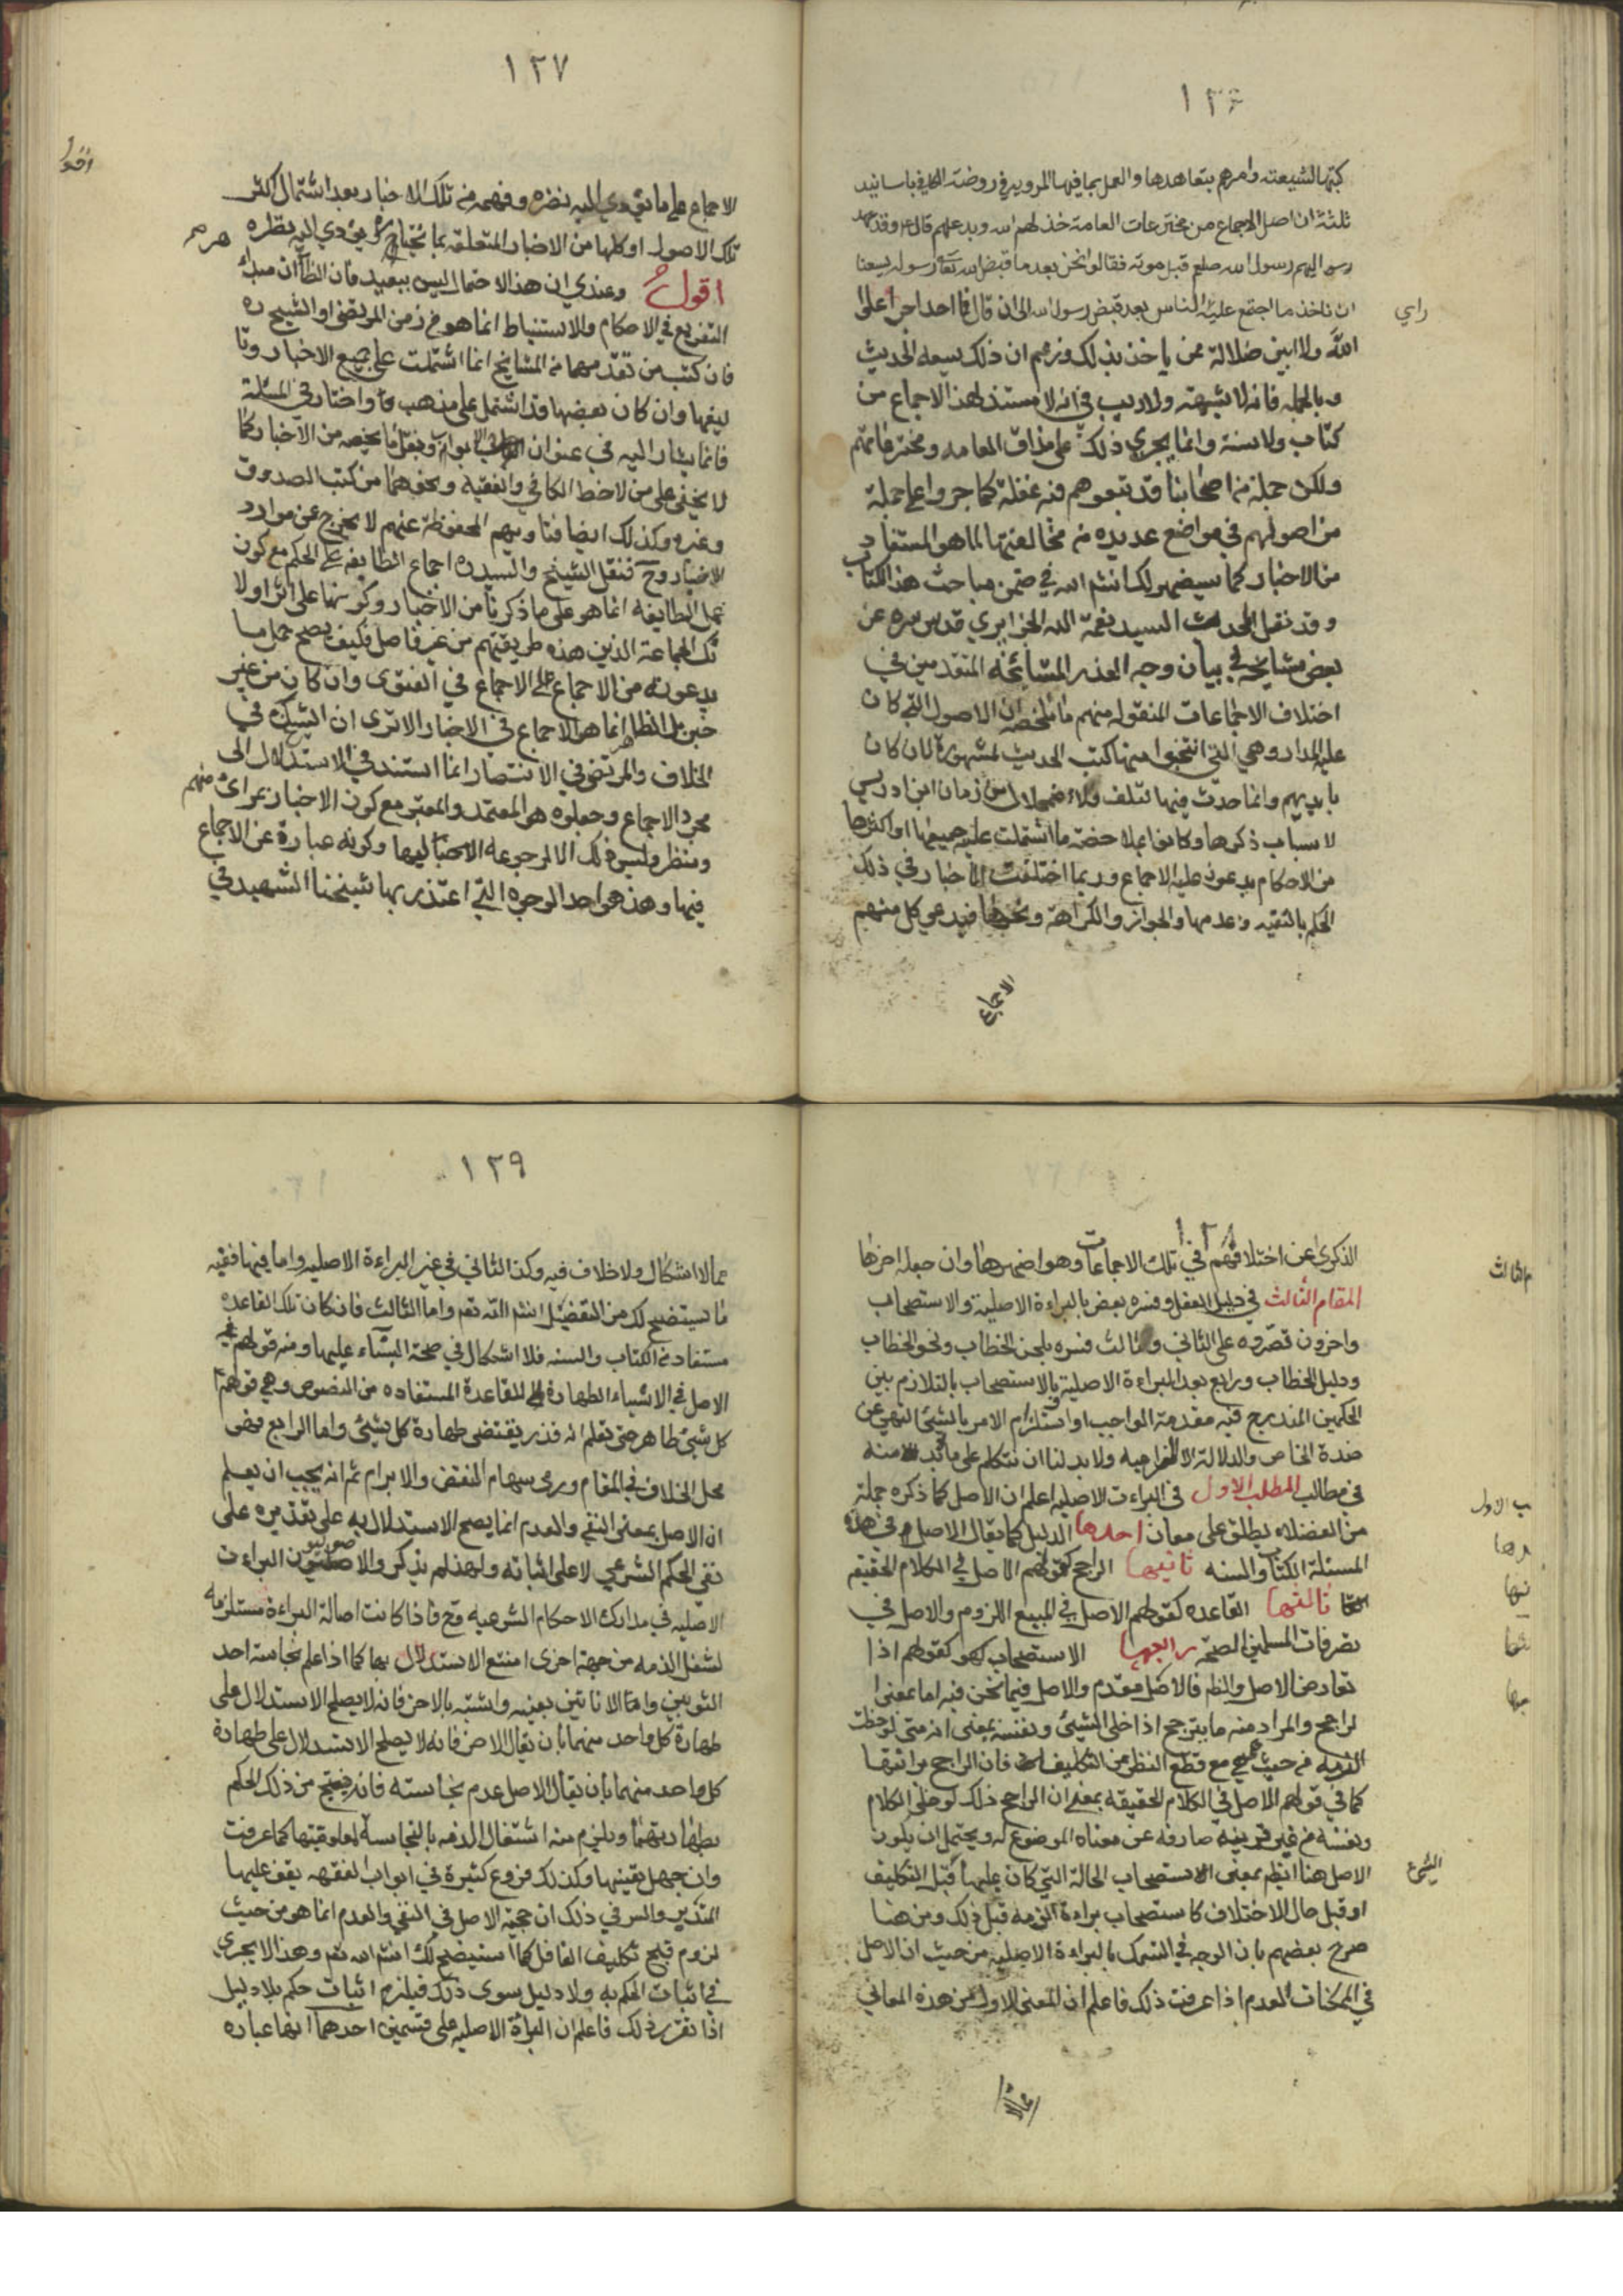 ١٢٦
كتبها لشيعته وامرهم بتعاهدها والعمل بما فيها المرويه في روضة الكافي باسانيد
ثلثة ان اصل الاجماع من مخترعات العامة خذلهم الله وبدعهم قال ع وقد عهد
اليهم رسول الله صلعم قبل موته فقالوا نحن بعد ما قبض الله رسوله يسعنا
ان ناخذ ما اجتمع عليه الناس بعد قبض رسول الله الى ان قال فما احد اجرأ على
راي
الله ولا ابين ضلالة ممن ياخذ بذلك وزعم ان ذلك يسعه الحديث
وبالجمله فانه لا شبهته ولا ريب في انه لا مستند لهذا الاجماع من
كتاب ولا سنة وانما يجري ذلك على مذاق العامه ومخترعاتهم
ولكن جملة من اصحابنا قد تبعوهم فيه غفلة كما جروا على جملة
من اصولهم في مواضع عديده مع مخالفتها لما هو المستفاد
من الاخبار كما سيضهر لك انشم الله في ضمن مباحث هذا الكتاب
وقد نقل المحدث السيد نعمة الله الجزايري قدس سره عن
بعض مشايخه في بيان وجه العذر لمشائخنا المتقدمين في
اختلاف الاجماعات المنقوله منهم ما ملخصه ان الاصول التي كان
عليه المدار وهي التي انتخبوا منها كتب الحديث المشهورة الان كان
بايديهم وانما حدث فيها تلف والاضمحلال من زمان ابن ادريس
لاسباب ذكرها وكانوا بملاحضة ما اشتملت عليه جميعها او اكثرها
من الاحكام يدعون عليه الاجماع وربما اختلفت الاخبار في ذلك
الحكم بالتقيه وعدمها والجواز والكراهة ونحوها فيدعي كل منهم
الاجماع
١٢٧
الاجماع على ما يؤدي اليه نضره وفهمه من تلك الاخبار بعد اشتمال اكثر
تلك الاصول او كلها من الاخبار المتعلقه بما يختاره ويؤدي اليه نظره
اقول وعندي ان هذا الاحتمال ليس ببعيد فان الظآ ان مبدأ
التفريع في الاحكام والاستنباط انما هو من زمن المرتضى او الشيخ ره
فان كتب من تقدمهما من المشايخ انما اشتملت على جميع الاخبار وتا
ليفها وان كان بعضها قد اشتمل على مذهب واختار في المسئلة
فانما يشار اليه في عنوان الابواب ونقل ما يخصه من الاخبار كما
لا يخفى على من لاحظ الكافي والفقيه ونحوهما من كتب الصدوق
وغيره وكذلك ايضا فتاويهم المحفوظة عنهم لا يخرج عن موارد
الاخبار وح فنقل الشيخ والسيد ره اجماع الطايفه على الحكم مع كون
عمل الطايفه انما هو على ما ذكرنا من الاخبار وكونهما على اثر اولا
ئك الجماعة الذين هذه طريقتهم من غير فاصل فكيف يصح حمل ما
يدعونه من الاجماع على الاجماع في الفتوى وان كان من غير
خبر بل الظاهر انما هو الاجماع في الاخبار الا ترى ان الشيخ في
الخلاف والمرتضى في الانتصار انما استند في الاستدلال الى
مجرد الاجماع وجعلوه هو المعتمد والمعتبر مع كون الاخبار بمرائ منهم
ومنظر وليس ذلك الا لرجوعه الاخبا ليها وكونه عبارة عن الاجماع
فيها وهذا هو احد الوجوه التي اعتذر بها شيخنا الشهيد في
١٢٨
الذكرى عن اختلافهم في تلك الاجماعات وهو اضهرها وان جعله اخرها
المقام الثالث في دليل العقل وفسره بعض بالبراءة الاصلية والاستصحاب
واخرون قصروه على الثاني وثالث فسره بلحن الخطاب ونحو الخطاب
ودليل الخطاب ورابع بعد البراءة الاصلية والاستصحاب بالتلازم بين
الحكمين المندرج فيه مقدمة الواجب واستلزام الامر بالشئ النهي عن
ضدة الخاص والدلالة الالتزاميه ولا بد لنا ان نتكلم على ما لابد منه
في مطالب المطلب الاول في البراءة الاصليه اعلم ان الاصل كما ذكره جملة
من الفضلاء يطلق على معان احدها الدليل كما يقال الاصل في هذه
المسئلة الكتاب والسنه ثانيها الراجح كقولهم الاصل في الكلام الحقيقه
ثالثها القاعده كقولهم الاصل في المبيع اللزوم والاصل في
تصرفات المسلمين الصحة رابعها الاستصحاب كقولهم اذا
تعارض الاصل والظاهر فالاصل مقدم والاصل فيما نحن فيه اما بمعنى
لراجح والمراد منه ما يترجح اذا خلي الشئ ونفسه بمعنى انه متى لوحظت
الذمه من حيث هي مع قطع النظر عن التكليف فان الراجح براءتها
كما في قولهم الاصل في الكلام الحقيقة بمعنى ان الراجح ذلك لو خلي الكلام
ونفسه من غير قرينه صارفه عن معناه الموضوع له ويحتمل ان يكون
الاصل هنا ايظم بمعنى الاستصحاب الحالة التي كان عليها قبل التكليف
او قبل حال الاختلاف كاستصحاب براءة الذمه قبل ذلك ومن هنا
صرح بعضهم بان الوجه في التمسك بالبراءة الاصليه من حيث ان الاصل
في الممكنات العدم اذا عرفت ذلك فاعلم ان المعنى الاول من هذه المعاني
ممالا
١٢٩
مما لا اشكال ولا خلاف فيه وكذا الثاني في غير البراءة الاصليه واما فيها ففيه
ما سيتضح لك من التفضيل انشم الله تعم واما الثالث فان كان تلك القاعده
مستفاده من الكتاب والسنه فلا اشكال في صحة البناء عليها ومنه قولهم
الاصل في الاشياء الطهارة للقاعدة المستفاده من النصوص وهي قولهم
كل شئ طاهر حتى تعلم انه قذر يقتضى طهارة كل شئ واما الرابع فهو
محل الخلاف في المقام ورمي سهام النقض والابرام ثم انه يجب ان يعلم
ان الاصل بمعنى النفي والعدم انما يصح الاستدلال به على تقديره على
نفي الحكم الشرعي لا على اثباته ولهذا لم يذكر والاصوليون البراءت
الاصليه في مدارك الاحكام الشرعيه وح فاذا كانت اصالة البراءة مستلزمه
لشغل الذمه من جهة اخرى امتنع الاستدلال بها كما اذا علم نجاسة احد
الثوبين او الانائين بعينه واشتبه بالاخر فانه لا يصلح الاستدلال على
طهارة كل واحد منهما بان يقال الاصل فانه لا يصلح الاستدلال على طهارة
كل واحد منهما بان يقال الاصل عدم نجاسته فانه ينتج من ذلك الحكم
بطهارتهما ويلزم منه اشتغال الذمه بالنجاسة المعلومة كما عرفت
وان جهل تعينها وكذلك فروع كثيرة في ابواب الفقهه يقف عليها
المتدبر والسر في ذلك ان حجية الاصل في النفي والعدم انما هو من حيث
لزوم قبح تكليف الغافل كما سيتضح لك انشم الله تعم وهذا لا يجري
في اثبات الحكم به ولا دليل سوى ذلك فيلزم اثبات حكم بلا دليل
اذا تقرر ذلك فاعلم ان البراءة الاصليه على قسمين احدهما انها عباره